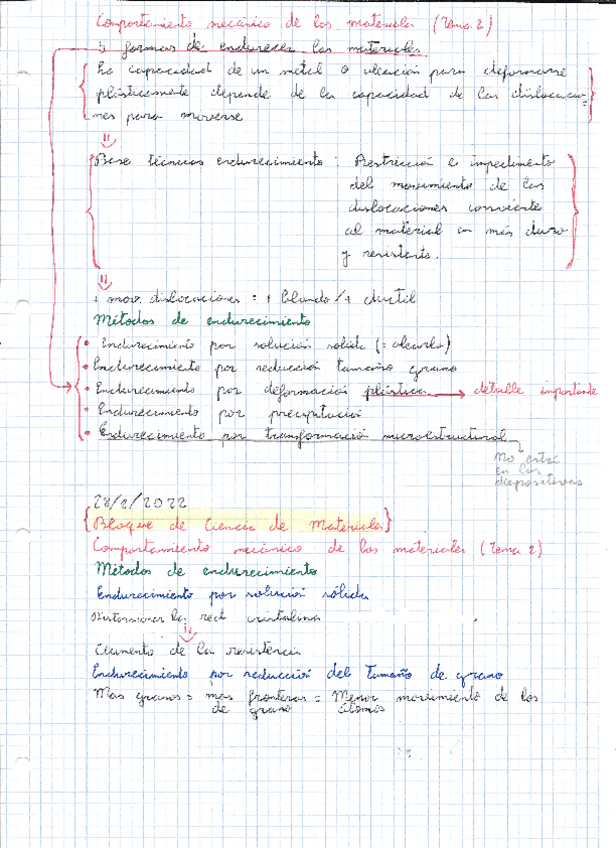 Comportamiento mecánico de los materiales (Tema 2)
5 formas de endurecer los materiales
La capacidad de un metal o aleación para deformarse
plásticamente depende de la capacidad de las dislocacio-
nes para moverse
Base técnicas endurecimiento: Restricción e impedimento
del movimiento de las
dislocaciones convierte
al material en más duro
y resistente.
+ mov. dislocaciones = + blando/+ ductil
Métodos de endurecimiento
• Endurecimiento por solución solida (= alearlo)
• Endurecimiento por reducción tamaño grano
• Endurecimiento por deformación plástica → detalle importante
• Endurecimiento por precipitación
• Endurecimiento por transformación microestructural
No está
en las
diapositivas
28/2/2022
{Bloque de Ciencia de Materiales}
Comportamiento mecánico de los materiales (Tema 2)
Métodos de endurecimiento
Endurecimiento por solución sólida
Distorsionar la red cristalina
Aumento de la resistencia
Endurecimiento por reducción del tamaño de grano
Mas granos = más fronteras = Menor movimiento de los
de grano átomos